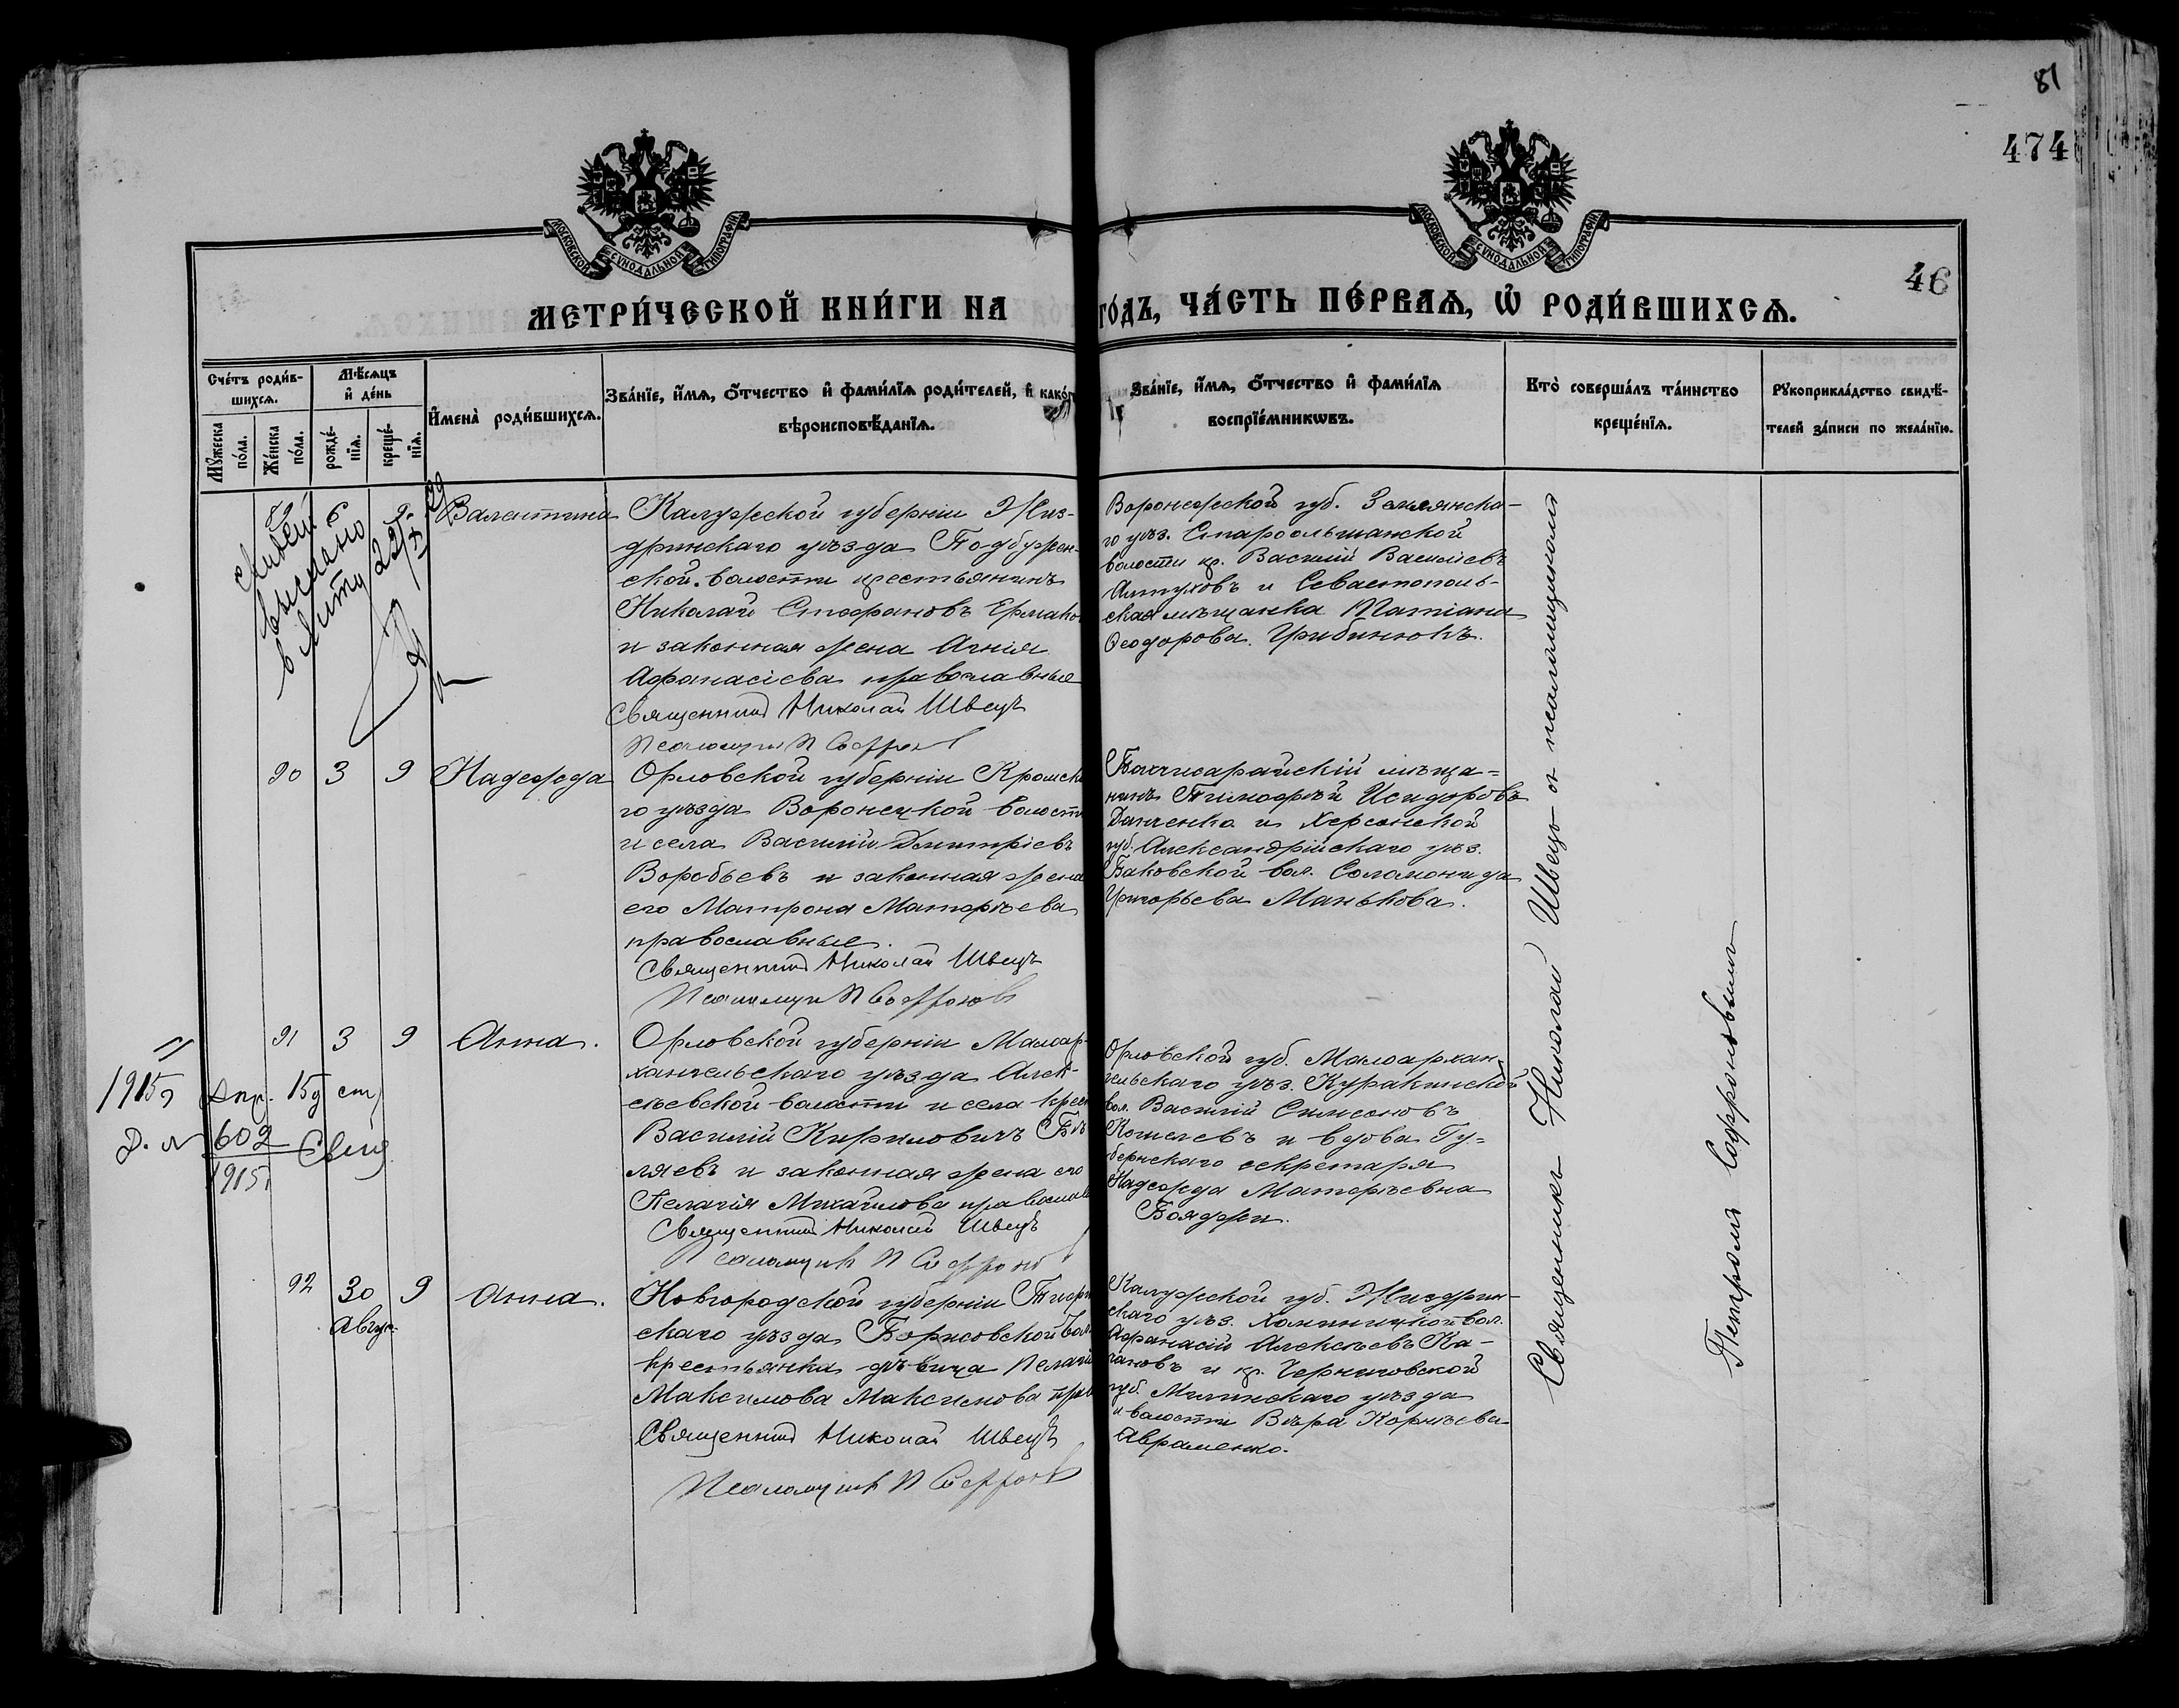 81
474
46
МОСКОВСКОЙ СѴНОДАЛЬНОЙ ТИПОГРАФІИ
МОСКОВСКОЙ СѴНОДАЛЬНОЙ ТИПОГРАФІИ
МЕТРИ́ЧЕСКОЙ КНИ́ГИ НА
ГО́ДЪ, ЧА́СТЬ ПЕ́РВАѦ, Ѿ РОДИ́ВШИХСѦ.
Сче́тъ роди́в-
шихсѧ.
Мꙋ́жеска
по́ла.
Же́нска
по́ла.
Мѣ́сѧцъ
и҆ де́нь
рожде́-
нїѧ.
креще́-
нїѧ.
И҆мена̀ роди́вшихсѧ.
Зва́нїе, и҆́мѧ, ѻ҆́тчество и҆ фами́лїѧ роди́телей, и҆ како́г
вѣроисповѣ́данїѧ.
Зва́нїе, и҆́мѧ, ѻ҆́тчество и҆ фами́лїѧ
воспрїе́мникѡвъ.
Кто̀ соверша́лъ та́инство
креще́нїѧ.
Рꙋкоприкла́дство свидѣ́-
телей за́писи по жела́нїю.
6
выслано
Валентина
Калужской губерніи Жиз-
дринскаго уѣзда Подбужен-
ской волости крестьянинъ
Николай Стефановъ Ермако
и законная жена Агнія
Афанасіева православные
Священникъ Николай Швецъ
Псаломщикъ П Софронов
Воронежской губ. Землянска-
го уѣз. Староольшанской
волости кр. Василій Василіевъ
Алтуховъ и Севастополь-
ская мѣщанка Татіана
Ѳеодорова Грибинюкъ.
90 3 9 Надежда
Орловской губерніи Кромска
го уѣзда Воронецкой волост
и села Василій Димитріевъ
Воробьевъ и законная жена
его Матрона Матвѣева
православные.
Священникъ Николай Швецъ
Псаломщикъ П Софронов
Бахчисарайскій мѣща-
нинъ Тимофей Исидоровъ
Данченко и Херсонской
губ. Александрійскаго уѣз.
Баковской вол. Соломонида
Григорьева Манькова.
91 3 9 Анна.
Орловской губерніи Малоар-
хангельскаго уѣзда Алек-
сѣевской волости и села крес
Василій Кириловичъ Бѣ
ляевъ и законная жена его
Пелагія Михаилова православ
Священникъ Николай Швецъ
Псаломщикъ П Софронов
Орловской губ. Малоархан-
гельскаго уѣз. Куракинской
вол. Василій Симеоновъ
Кошелевъ и вдова Гу-
бернскаго секретаря
Надежда Матвѣевна
Бояджи.
1915 г. Апр. 15 д ст
Д. № 602
1915 г.
92 30 9 Анна.
Авгус.
Новгородской губерніи Тихви
скаго уѣзда Борисовской вол
крестьянка дѣвица Пелагія
Максимова Максимова прав
Священникъ Николай Швецъ
Псаломщикъ П Софронов
Калужской губ. Жиздрин-
скаго уѣз. Хотинцкой вол.
Афанасій Алексѣевъ Ка-
гановъ и кр. Черниговской
губ. Мглинскаго уѣзда
и волости Вѣра Корнѣева
Авраменко.
Священникъ Николай Швецъ съ псаломщикомъ
Петромъ Софроновымъ